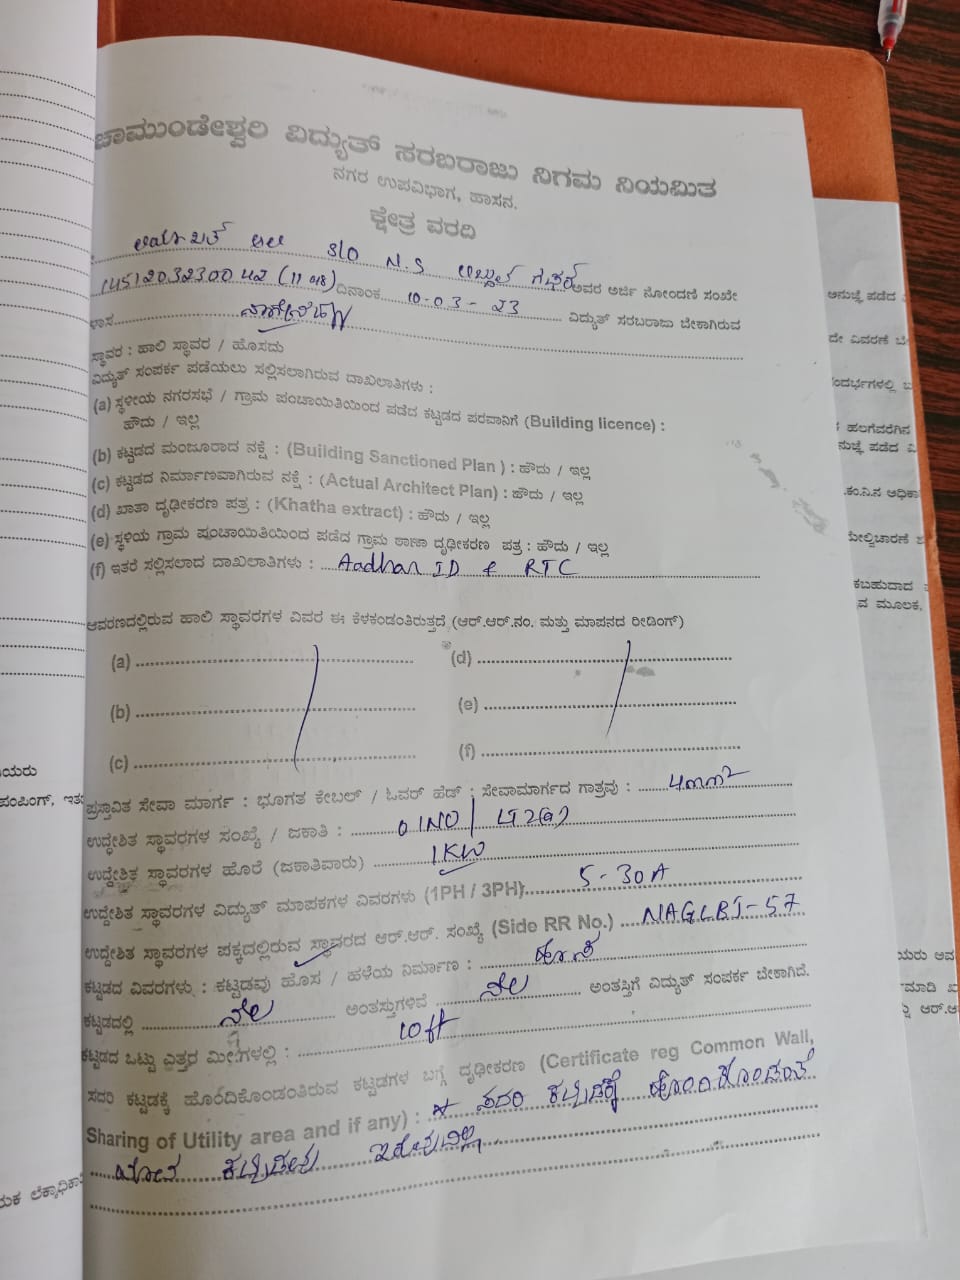 ಚಾಮುಂಡೇಶ್ವರಿ ವಿದ್ಯುತ್ ಸರಬರಾಜು ನಿಗಮ ನಿಯಮಿತ
ನಗರ ಉಪವಿಭಾಗ, ಹಾಸನ.
ಕ್ಷೇತ್ರ ವರದಿ
S/O N.S ಅಬ್ದುಲ್ ಗಫರ್ ಅವರ ಅರ್ಜಿ ನೋಂದಣಿ ಸಂಖೇ
ದಿನಾಂಕ 10-03-23 ವಿದ್ಯುತ್ ಸರಬರಾಜು ಬೇಕಾಗಿರುವ
ಸ್ಥಾವರ : ಹಾಲಿ ಸ್ಥಾವರ / ಹೊಸದು
ವಿದ್ಯುತ್ ಸಂಪರ್ಕ ಪಡೆಯಲು ಸಲ್ಲಿಸಲಾಗಿರುವ ದಾಖಲಾತಿಗಳು :
(a) ಸ್ಥಳೀಯ ನಗರಸಭೆ / ಗ್ರಾಮ ಪಂಚಾಯಿತಿಯಿಂದ ಪಡೆದ ಕಟ್ಟಡದ ಪರವಾನಿಗೆ (Building licence) :
ಹೌದು / ಇಲ್ಲ
(b) ಕಟ್ಟಡದ ಮಂಜೂರಾದ ನಕ್ಷೆ : (Building Sanctioned Plan ) : ಹೌದು / ಇಲ್ಲ
(c) ಕಟ್ಟಡದ ನಿರ್ಮಾಣವಾಗಿರುವ ನಕ್ಷೆ : (Actual Architect Plan) : ಹೌದು / ಇಲ್ಲ
(d) ಖಾತಾ ದೃಢೀಕರಣ ಪತ್ರ : (Khatha extract) : ಹೌದು / ಇಲ್ಲ
(e) ಸ್ಥಳಿಯ ಗ್ರಾಮ ಪಂಚಾಯಿತಿಯಿಂದ ಪಡೆದ ಗ್ರಾಮ ಠಾಣಾ ದೃಢೀಕರಣ ಪತ್ರ : ಹೌದು / ಇಲ್ಲ
(f) ಇತರೆ ಸಲ್ಲಿಸಲಾದ ದಾಖಲಾತಿಗಳು : Aadhar ID & RTC
ಆವರಣದಲ್ಲಿರುವ ಹಾಲಿ ಸ್ಥಾವರಗಳ ವಿವರ ಈ ಕೆಳಕಂಡಂತಿರುತ್ತದೆ (ಆರ್.ಆರ್.ನಂ. ಮತ್ತು ಮಾಪನದ ರೀಡಿಂಗ್)
(a) (d)
(b) (e)
(c) (f)
ಪ್ರಸ್ತಾವಿತ ಸೇವಾ ಮಾರ್ಗ : ಭೂಗತ ಕೇಬಲ್ / ಓವರ್ ಹೆಡ್ : ಸೇವಾಮಾರ್ಗದ ಗಾತ್ರವು : 4mm²
ಉದ್ದೇಶಿತ ಸ್ಥಾವರಗಳ ಸಂಖ್ಯೆ / ಜಕಾತಿ : 01NO / LT2(a)
ಉದ್ದೇಶಿತ ಸ್ಥಾವರಗಳ ಹೊರೆ (ಜಕಾತಿವಾರು) 1KW
ಉದ್ದೇಶಿತ ಸ್ಥಾವರಗಳ ವಿದ್ಯುತ್ ಮಾಪಕಗಳ ವಿವರಗಳು (1PH / 3PH) 5-30A
ಉದ್ದೇಶಿತ ಸ್ಥಾವರಗಳ ಪಕ್ಕದಲ್ಲಿರುವ ಸ್ಥಾವರದ ಆರ್.ಆರ್. ಸಂಖ್ಯೆ (Side RR No.) NAGLBJ-57
ಕಟ್ಟಡದ ವಿವರಗಳು : ಕಟ್ಟಡವು ಹೊಸ / ಹಳೆಯ ನಿರ್ಮಾಣ :
ಕಟ್ಟಡದಲ್ಲಿ ನೆಲ ಅಂತಸ್ತುಗಳಿವೆ ನೆಲ ಅಂತಸ್ತಿಗೆ ವಿದ್ಯುತ್ ಸಂಪರ್ಕ ಬೇಕಾಗಿದೆ.
ಕಟ್ಟಡದ ಒಟ್ಟು ಎತ್ತರ ಮೀಗಳಲ್ಲಿ : 10ft
ಸದರಿ ಕಟ್ಟಡಕ್ಕೆ ಹೊಂದಿಕೊಂಡಂತಿರುವ ಕಟ್ಟಡಗಳ ಬಗ್ಗೆ ದೃಢೀಕರಣ (Certificate reg Common Wall,
Sharing of Utility area and if any) : * ಸದರಿ ಕಟ್ಟಡಕ್ಕೆ ಹೊಂದಿಕೊಂಡಂತೆ
ಯಾವ ಕಟ್ಟಡವು ಇರುವುದಿಲ್ಲ